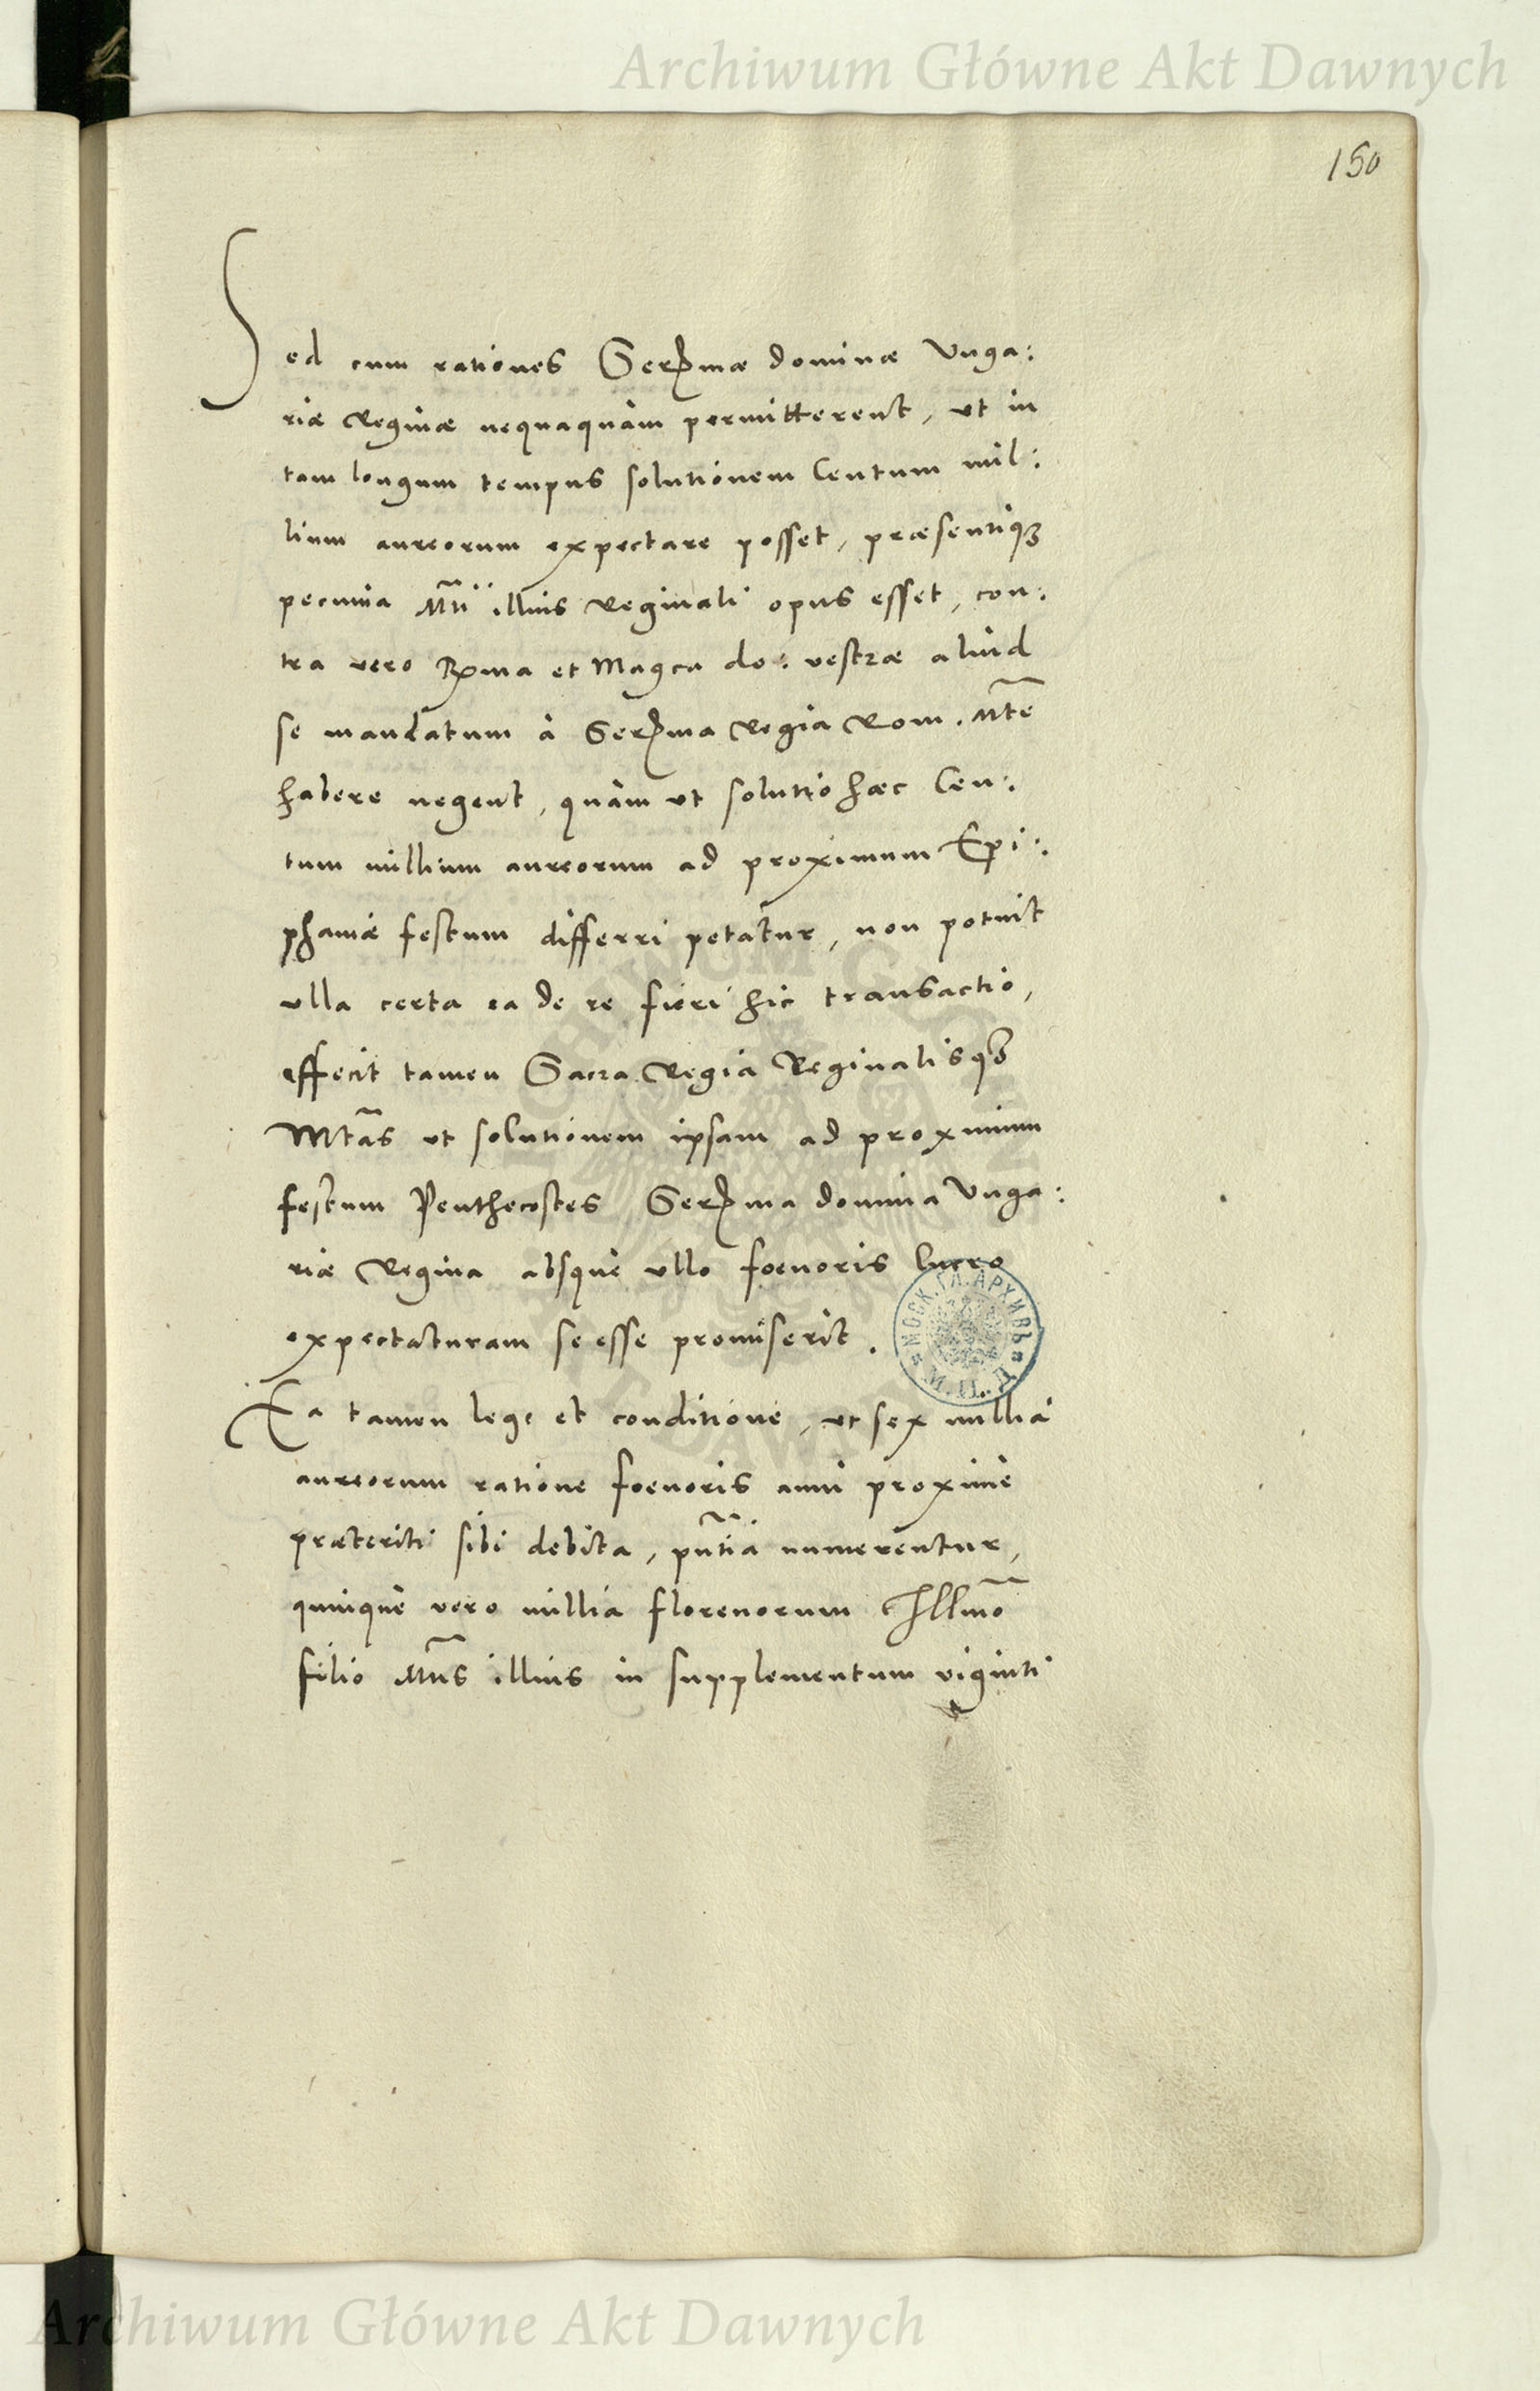 Archiwum Główne Akt Dawnych
150
Sed cum rationes Serma dominæ Unga:
riæ Reginæ nequaquam permitterent, ut in
tam longum tempus solutionem Centum mil:
lium aureorum expectare posset, præsentiq3
pecunia Mti illius Reginali opus esset, con:
tra vero Rma et Magca do: vestræ aliud
se mandatum à Serma Regia Rom. Mte
habere negent, quàm ut solutio hæc Cen:
tum millium aureorum ad proximum Epi:
phaniæ festum differri petatur, non potuit
ulla certa ea de re fieri hic transactio,
effecit tamen Sacra Regia Reginalisq3
Mtas ut solutionem ipsam ad proximum
festum Penthecostes Serma domina Unga:
riæ Regina absque ullo foenoris lucro
expectaturam se esse promiserit.
Ea tamen lege et conditione, ut sex millia
aureorum ratione foenoris anni proxime
præteriti sibi debita, pntia numerentur,
quinque vero millia florenorum Illmo
filio Mtis illius in supplementum viginti
МОСК. ГЛ. АРХИВЪ
М. И. Д.
Archiwum Główne Akt Dawnych